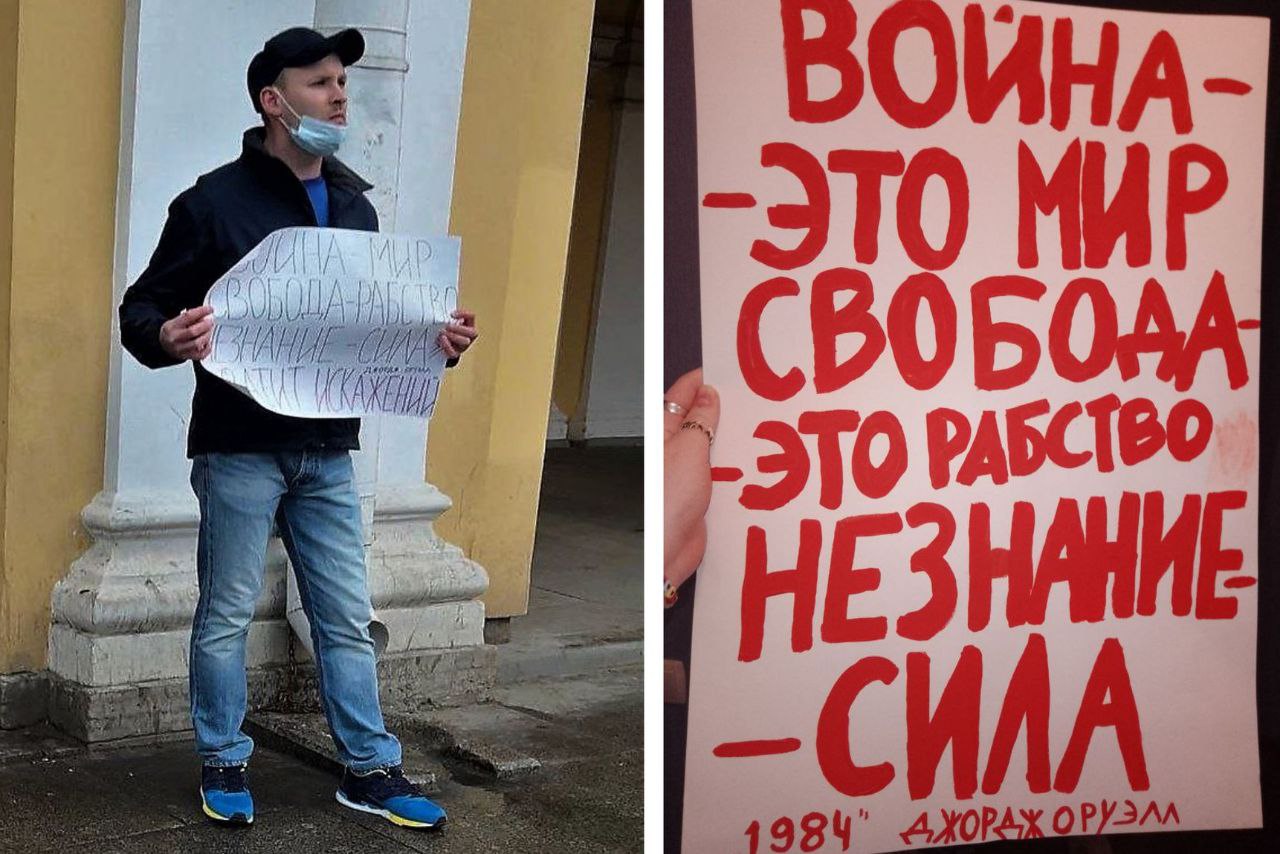 ВОЙНА - МИР
СВОБОДА-РАБСТВО
НЕЗНАНИЕ -СИЛА»
ДЖОРДЖ ОРУЭЛЛ
ХВАТИТ ИСКАЖЕНИЙ
ВОЙНА-
-ЭТО МИР
СВОБОДА-
-ЭТО РАБСТВО
НЕЗНАНИЕ-
-СИЛА
1984" ДЖОРДЖ ОРУЭЛЛ